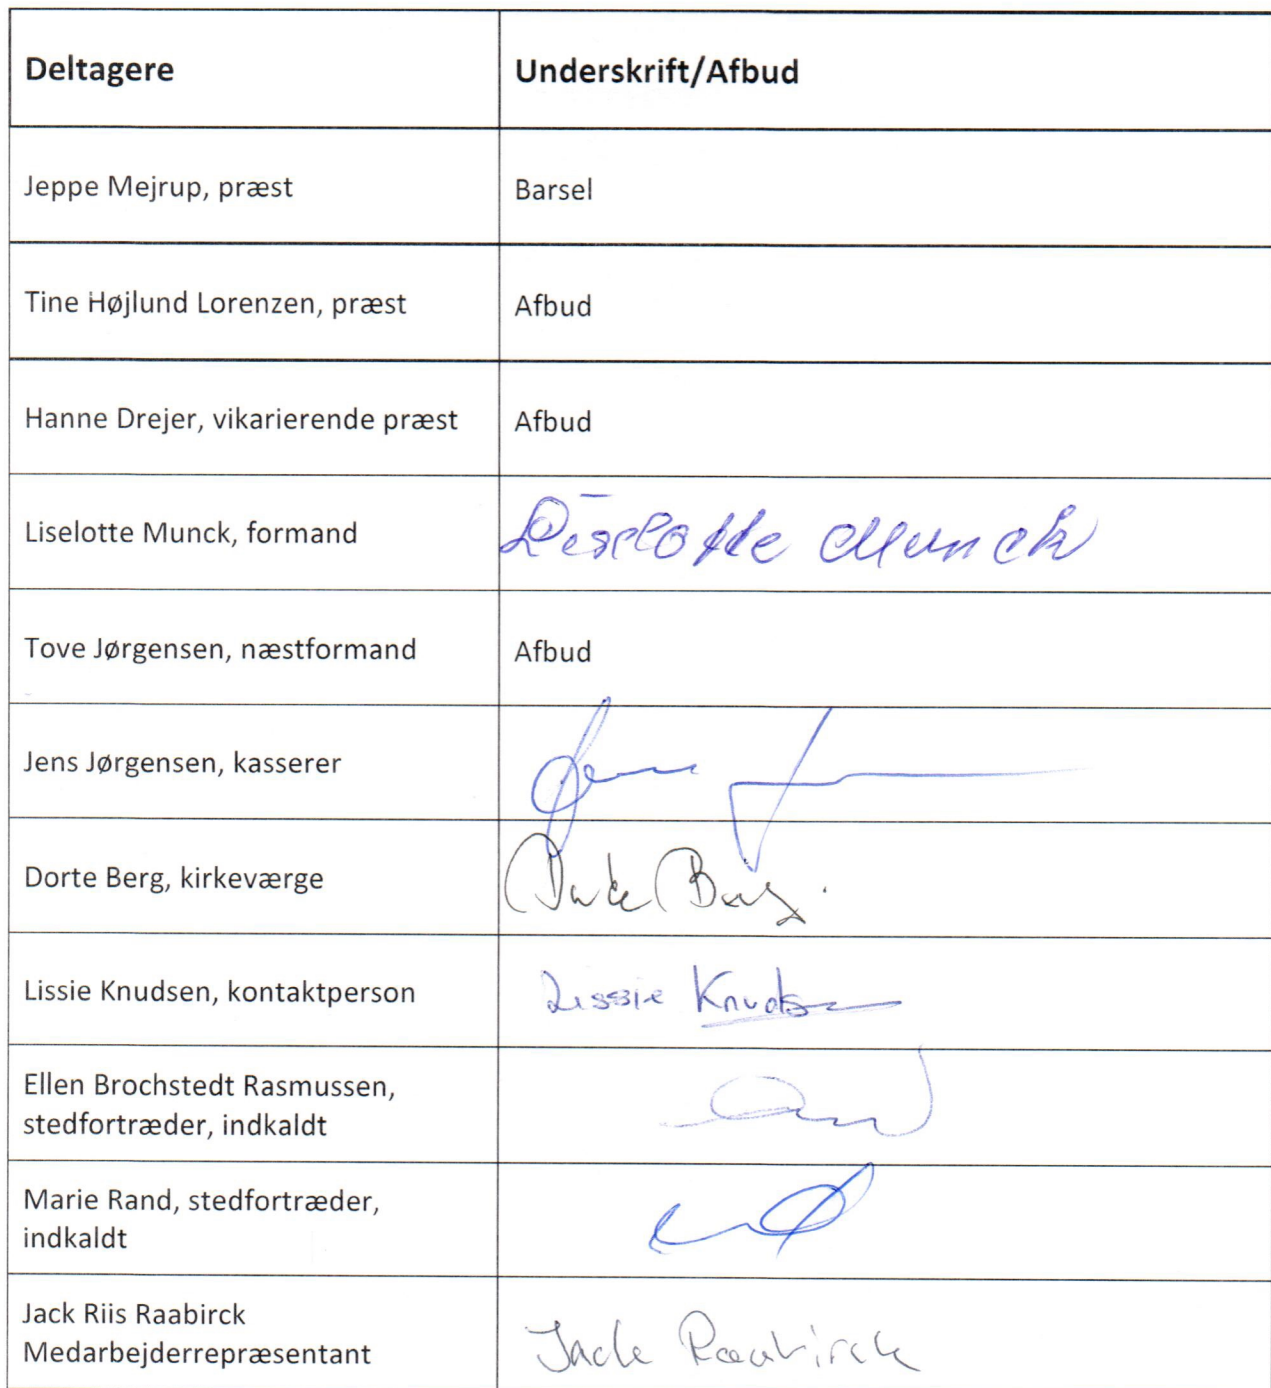 Deltagere
Underskrift/Afbud
Jeppe Mejrup, præst
Barsel
Tine Højlund Lorenzen, præst
Afbud
Hanne Drejer, vikarierende præst
Afbud
Liselotte Munck, formand
Liselotte Munck
Tove Jørgensen, næstformand
Afbud
Jens Jørgensen, kasserer
Dorte Berg, kirkeværge
Dorte Berg.
Lissie Knudsen, kontaktperson
Lissie Knudsen
Ellen Brochstedt Rasmussen,
stedfortræder, indkaldt
Marie Rand, stedfortræder,
indkaldt
Jack Riis Raabirck
Medarbejderrepræsentant
Jack Raabirck